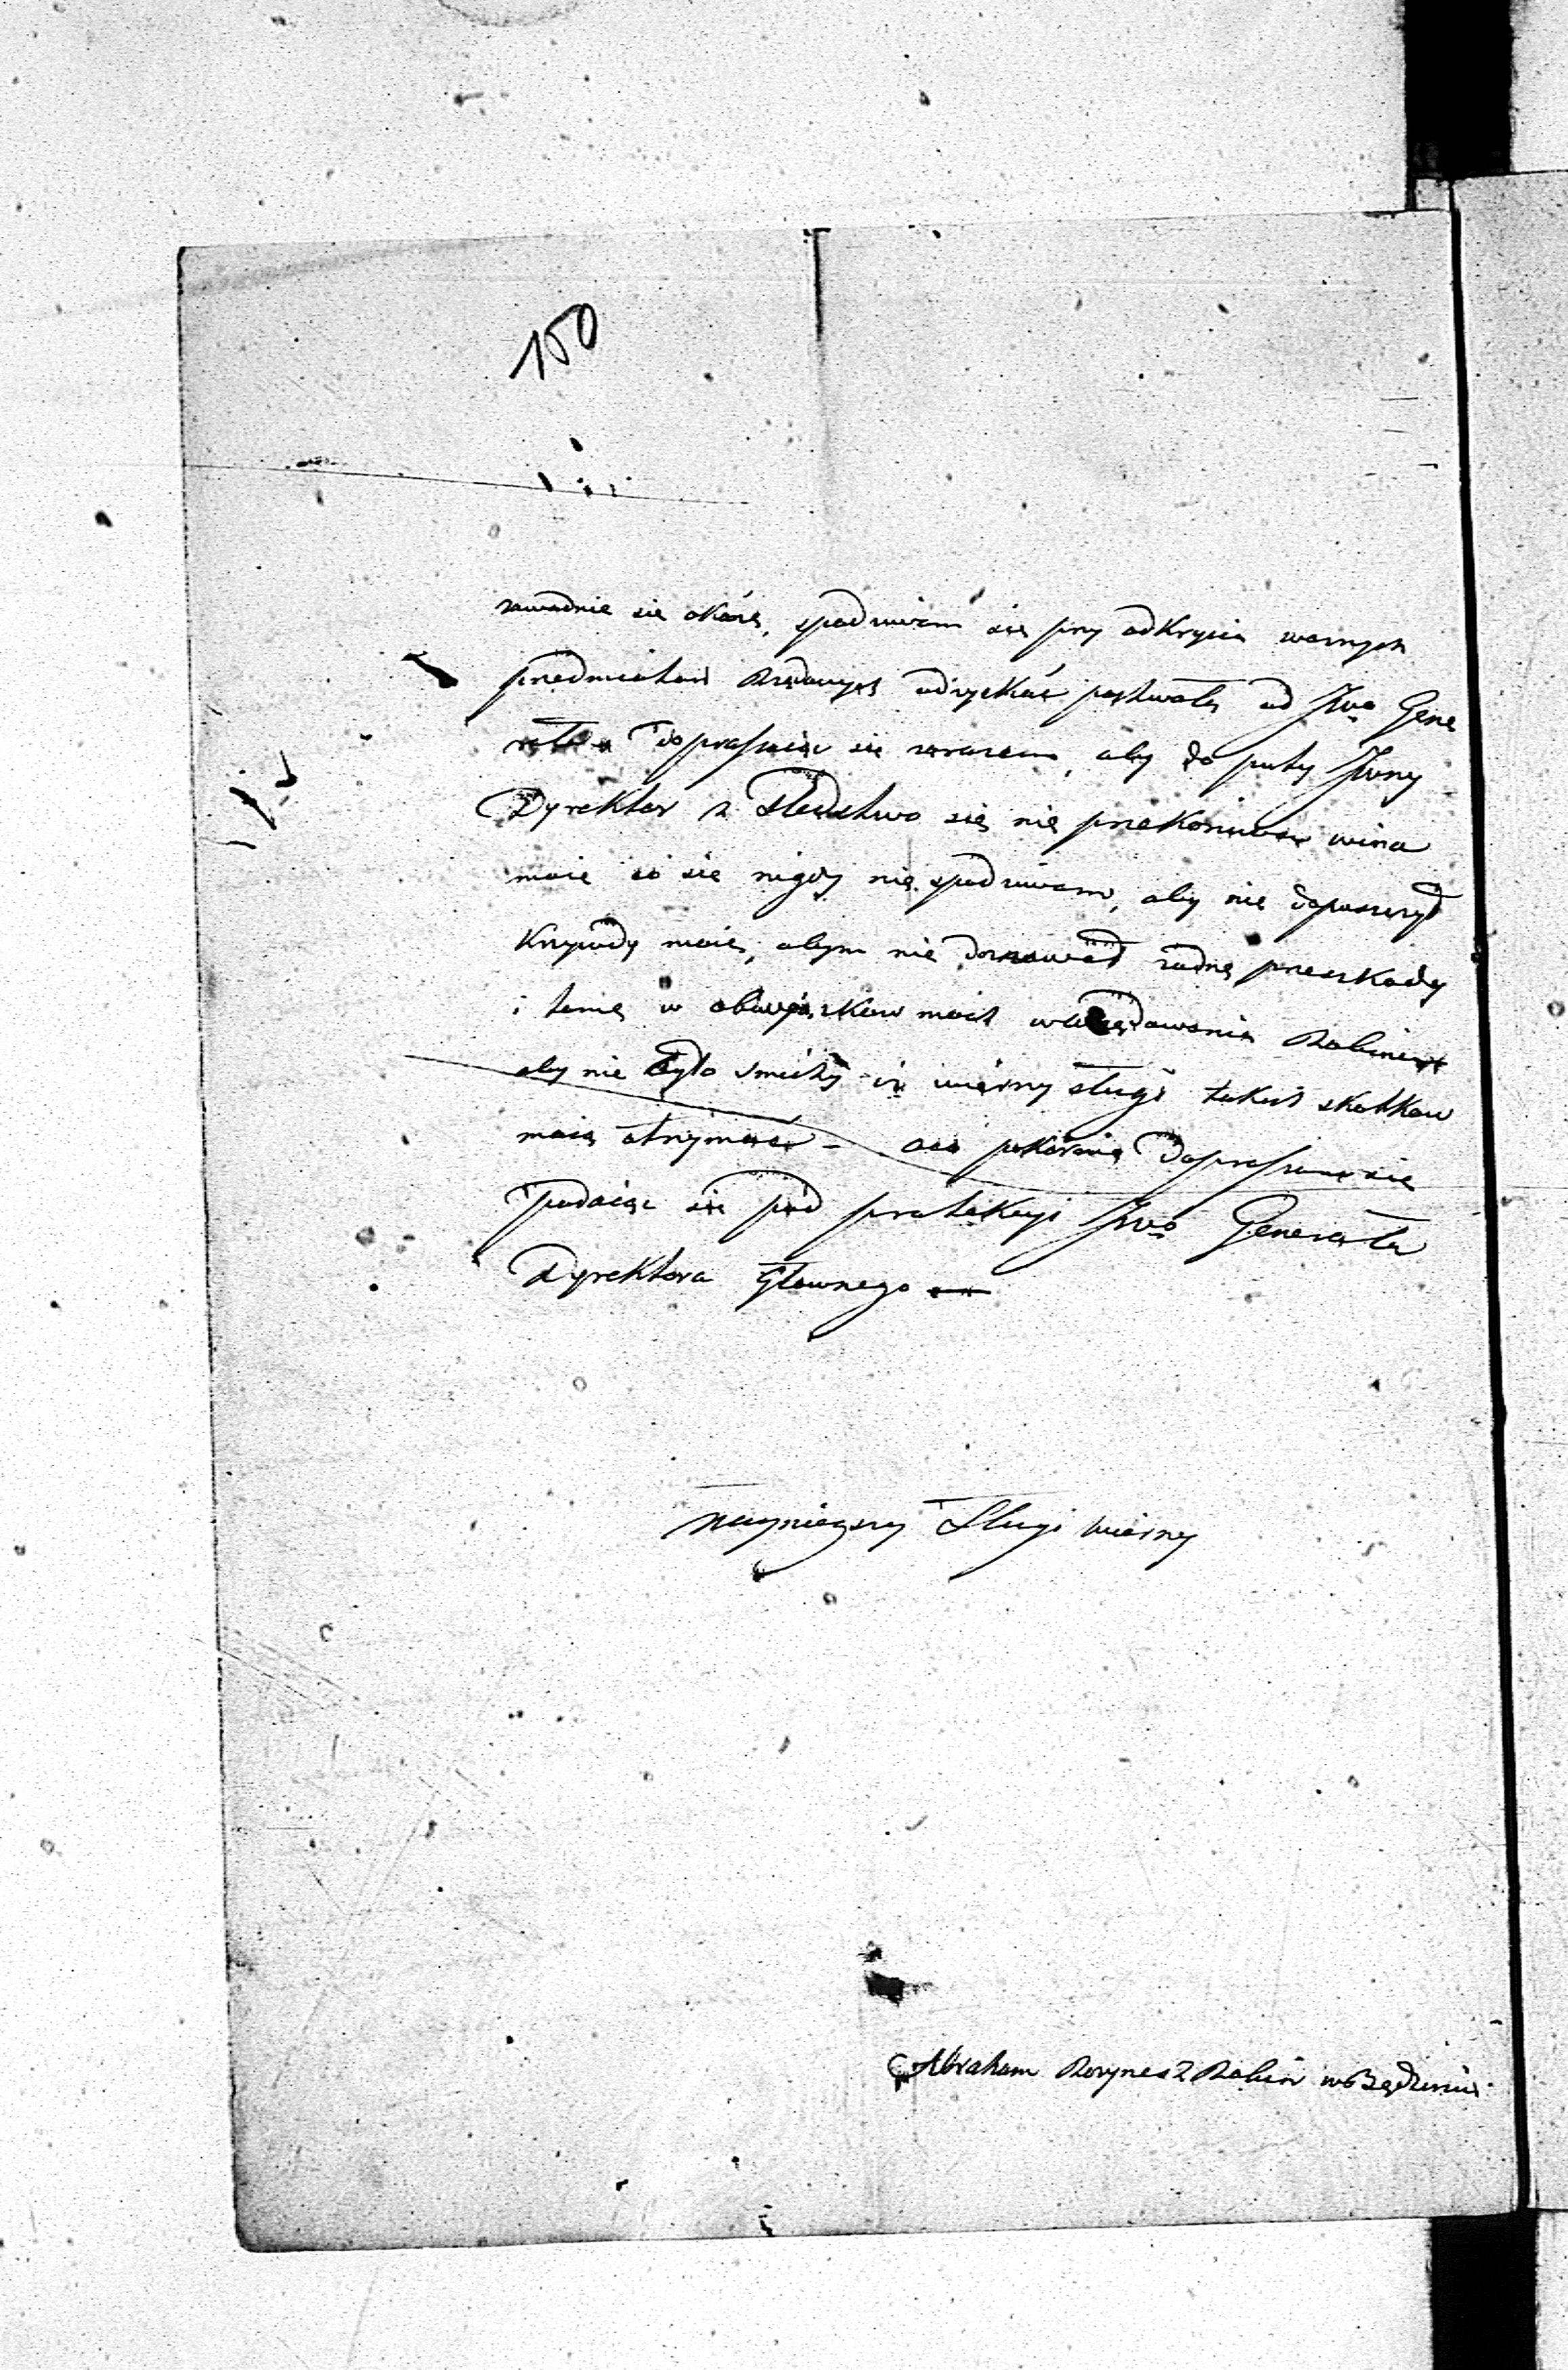 150
zawodnie się okaże, spodziwam się przy odkrycia waznych
przedmiotow Rządowych odzyskać pochwałę od JWo Gene
rała dopraszaiąc się zarazem, aby do puty JWny
Dyrektor z Sledztwo się nie przekoniwa wina
moie co się nigdy nie spodziwam, aby nie dopuszczył
Krzywdy moie, abym nie doznawał zadne przeszkody
i tamę w obowiązkow moich Rabina
aby nie było iz wierny sługi takich skutkow
maią otrzymać – oco pokornie dopraszam się
Podaiąc się pod protekcyi JWo Generała
Dyrektora Głownego
Nayniezszy Sługi wierny
Abraham Rabin w Będzinie